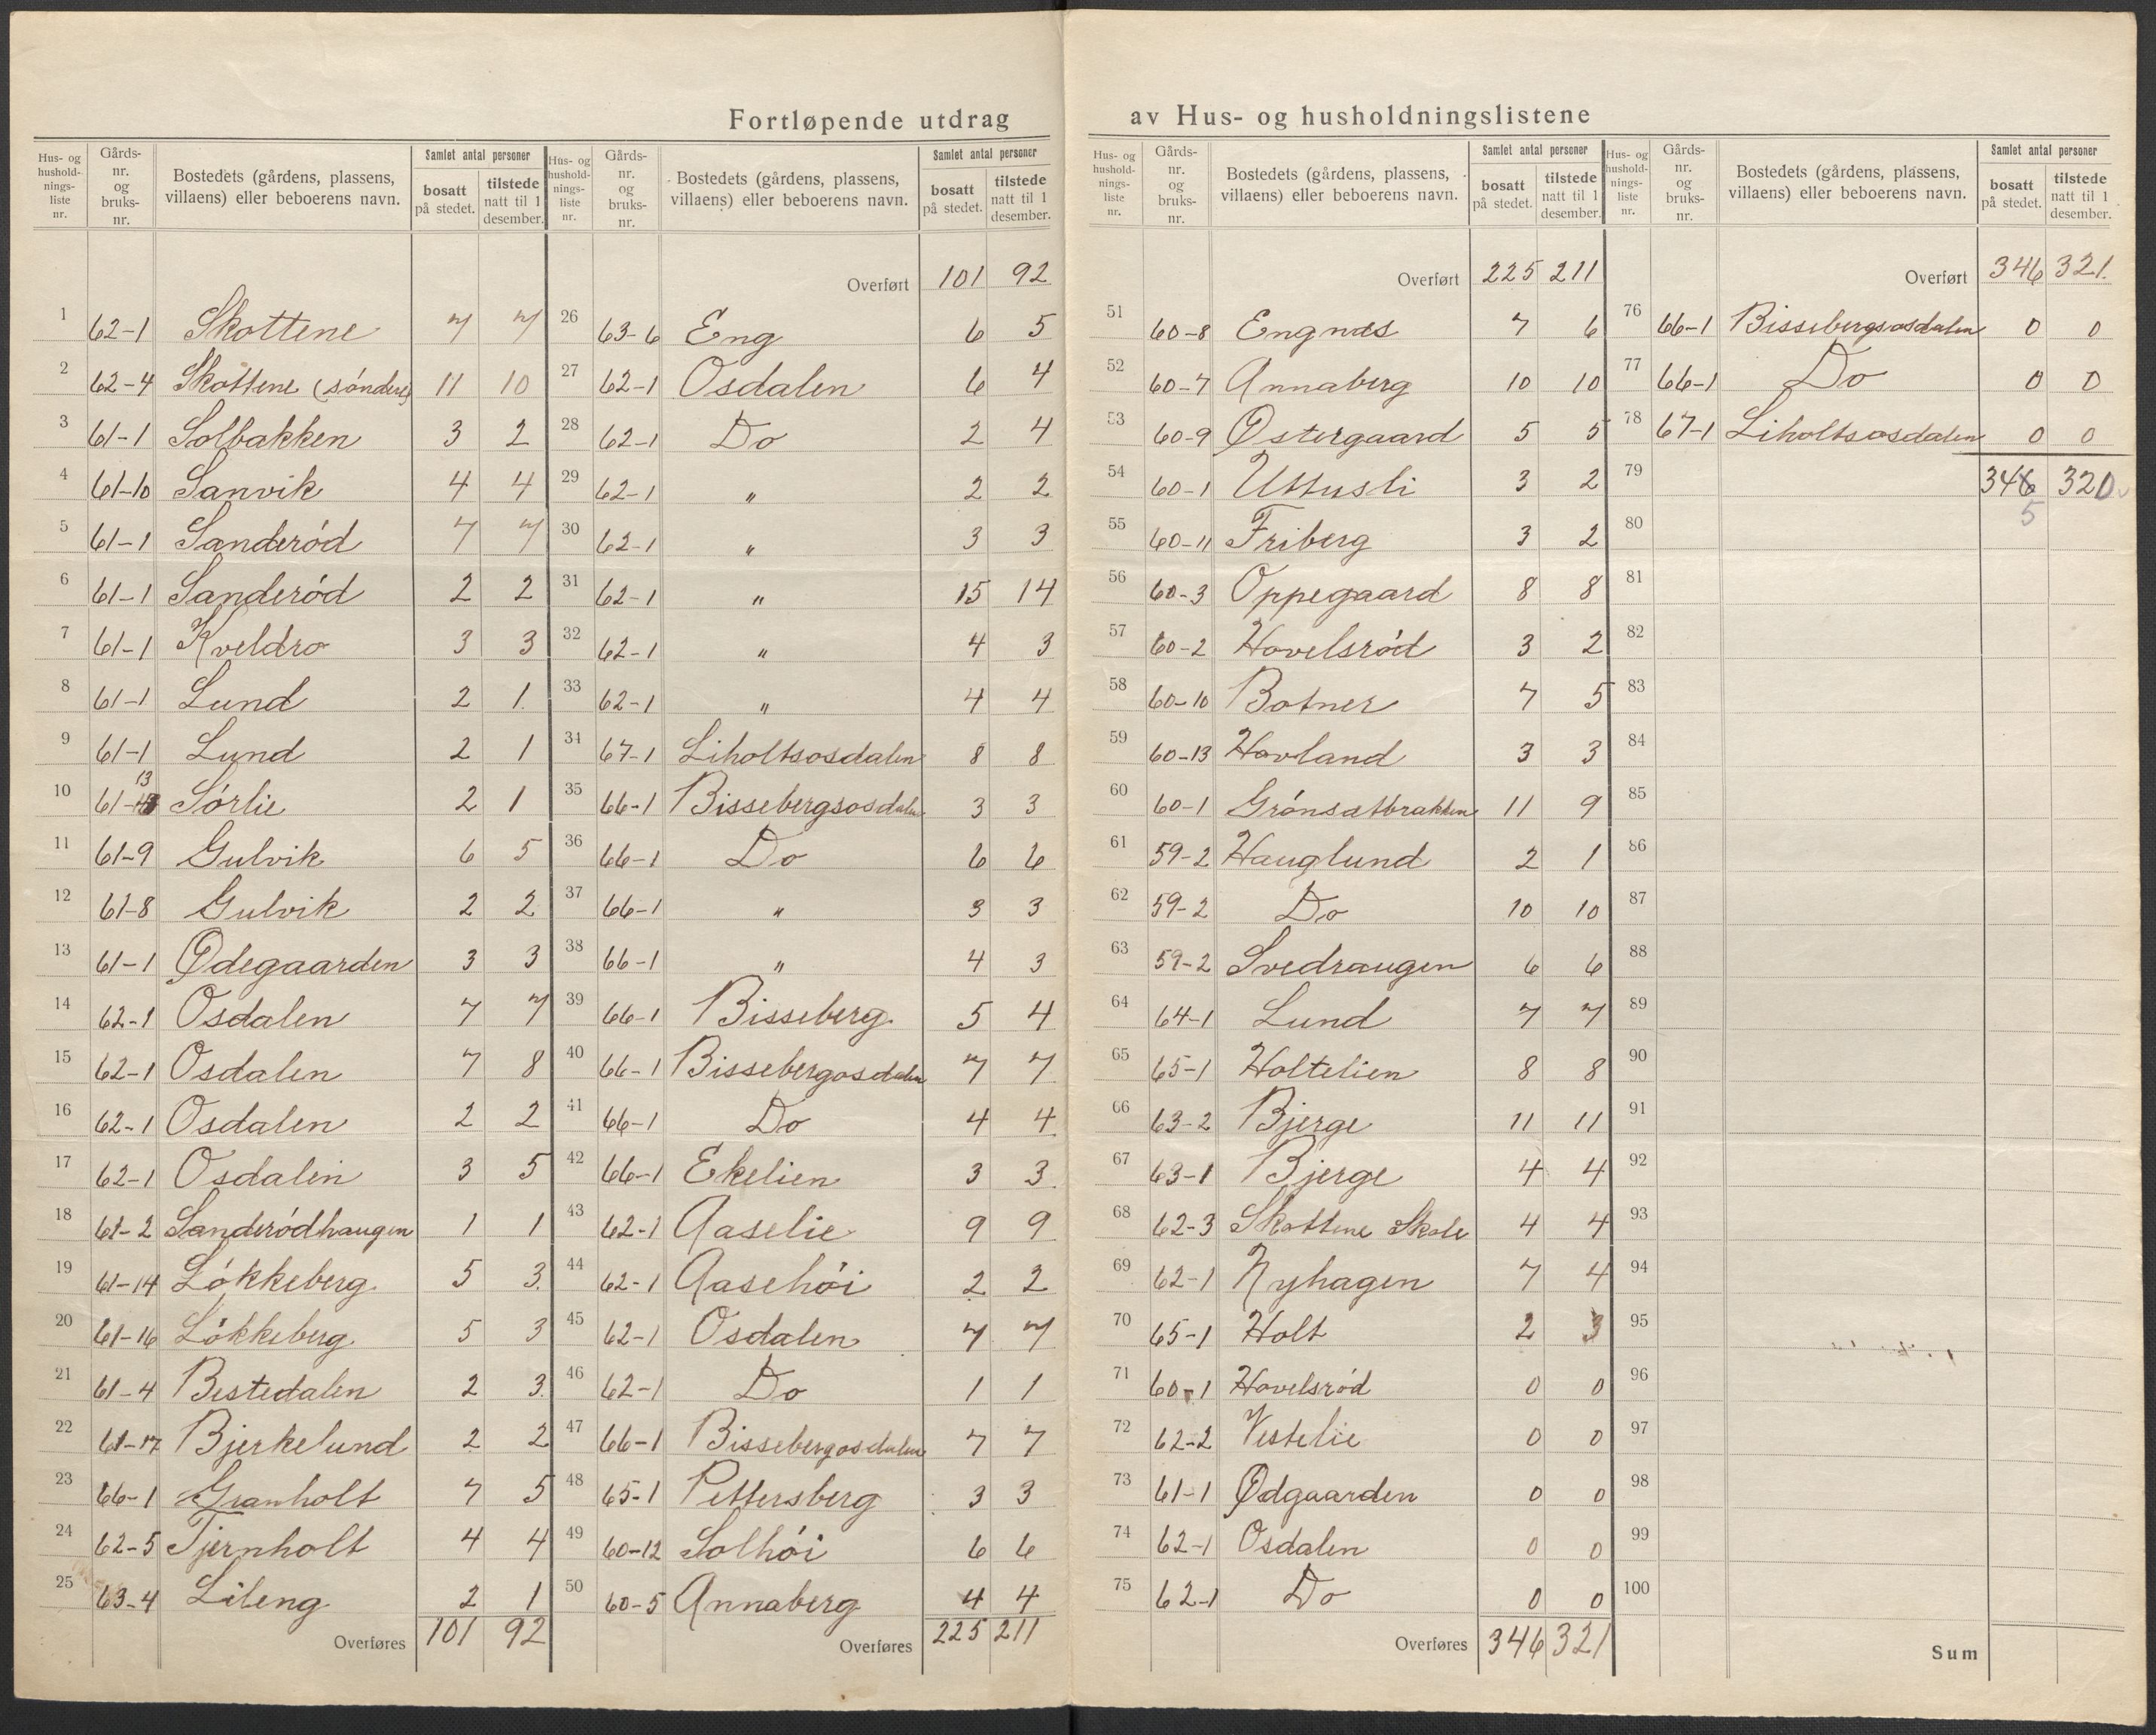 Fortløpende utdrag av Hus- og husholdningslistene
Hus- og hushold-nings-liste nr. | Gårds-nr. og bruks-nr. | Bostedets (gårdens, plassens, villaens) eller beboerens navn. | Samlet antal personer | bosatt på stedet. | tilstede natt til 1 desember.
1 62-1 Skottene 7 7
2 62-4 Skottene (søndre) 11 10
3 61-1 Solbakken 3 2
4 61-10 Sanvik 4 4
5 61-1 Sanderød 7 7
6 61-1 Sanderød 2 2
7 61-1 Kveldro 3 3
8 61-1 Lund 2 1
9 61-1 Lund 2 1
10 61-13 Sórlie 2 1
11 61-9 Gulvik 6 5
12 61-8 Gulvik 2 2
13 61-1 Ødegaarden 3 3
14 62-1 Osdalen 7 7
15 62-1 Osdalen 7 8
16 62-1 Osdalen 2 2
17 62-1 Osdalen 3 5
18 61-2 Sanderódhaugen 1 1
19 61-14 Lókkeberg 5 3
20 61-16 Lókkeberg 5 3
21 61-4 Bestedalen 2 3
22 61-17 Bjerkelund 2 2
23 66-1 Granholt 7 5
24 62-5 Tjernholt 4 4
25 63-4 Lileng 2 1
Overføres 101 92
Hus- og hushold-nings-liste nr. | Gårds-nr. og bruks-nr. | Bostedets (gårdens, plassens, villaens) eller beboerens navn. | Samlet antal personer | bosatt på stedet. | tilstede natt til 1 desember.
Overført 101 92
26 63-6 Eng 6 5
27 62-1 Osdalen 6 4
28 62-1 Do 2 4
29 62-1 " 2 2
30 62-1 " 3 3
31 62-1 " 15 14
32 62-1 " 4 3
33 62-1 " 4 4
34 67-1 Liholtsosdalen 8 8
35 66-1 Bissebergsosdalen 3 3
36 66-1 Do 6 6
37 66-1 " 3 3
38 66-1 " 4 3
39 66-1 Bisseberg 5 4
40 66-1 Bissebergosdalen 7 7
41 66-1 Do 4 4
42 66-1 Ekelien 3 3
43 62-1 Aaselie 9 9
44 62-1 Aasehói 2 2
45 62-1 Osdalen 7 7
46 62-1 Do 1 1
47 66-1 Bissebergosdalen 7 7
48 65-1 Pettersberg 3 3
49 60-12 Solhói 6 6
50 60-5 Annaberg 4 4
Overføres 225 211
Hus- og hushold-nings-liste nr. | Gårds-nr. og bruks-nr. | Bostedets (gårdens, plassens, villaens) eller beboerens navn. | Samlet antal personer | bosatt på stedet. | tilstede natt til 1 desember.
Overført 225 211
51 60-8 Engnæs 7 6
52 60-7 Annaberg 10 10
53 60-9 Østergaard 5 5
54 60-1 Uttusli 3 2
55 60-11 Friberg 3 2
56 60-3 Oppegaard 8 8
57 60-2 Hovelsród 3 2
58 60-10 Botner 7 5
59 60-13 Hovland 3 3
60 60-1 Grónsætbrakken 11 9
61 59-2 Hauglund 2 1
62 59-2 Do 10 10
63 59-2 Svedraugen 6 6
64 64-1 Lund 7 7
65 65-1 Holtelien 8 8
66 63-2 Bjerge 11 11
67 63-1 Bjerge 4 4
68 62-3 Skottene Skole 4 4
69 62-1 Nyhagen 7 4
70 65-1 Holt 2 3
71 60-1 Hovelsrød 0 0
72 62-2 Vestelie 0 0
73 61-1 Ødgaarden 0 0
74 62-1 Osdalen 0 0
75 62-1 Do 0 0
Overføres 346 321
Hus- og hushold-nings-liste nr. | Gårds-nr. og bruks-nr. | Bostedets (gårdens, plassens, villaens) eller beboerens navn. | Samlet antal personer | bosatt på stedet. | tilstede natt til 1 desember.
Overført 346 321
76 66-1 Bissebergsosdalen 0 0
77 66-1 Do 0 0
78 67-1 Liholtsosdalen 0 0
79 346 320
5
80
81
82
83
84
85
86
87
88
89
90
91
92
93
94
95
96
97
98
99
100
Sum